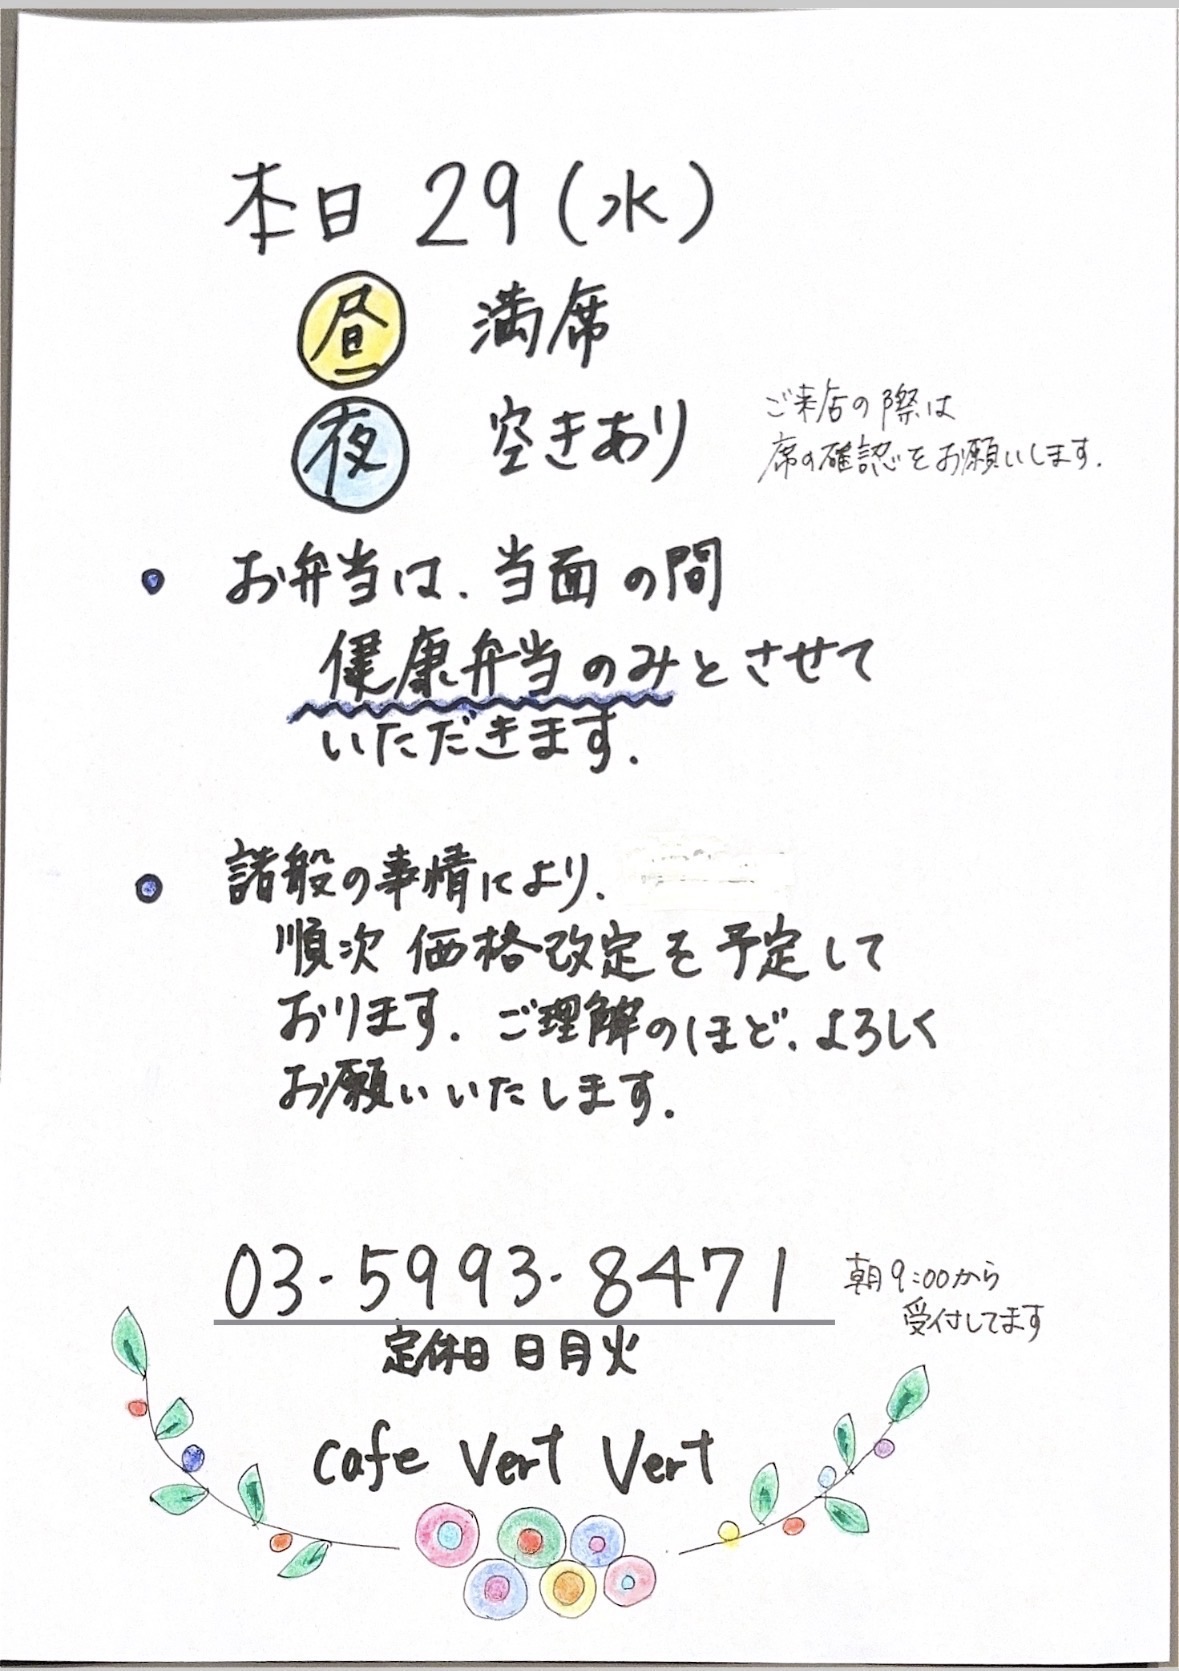 本日 29(水)
昼 満席
夜 空きあり
ご来店の際は
席の確認をお願いします.
お弁当は、当面の間
健康弁当のみとさせて
いただきます.
諸般の事情により、
順次 価格改定を予定して
おります. ご理解のほど、よろしく
お願いいたします.
03-5993-8471
朝9:00から
受付してます
定休日 日月火
cafe Vert Vert